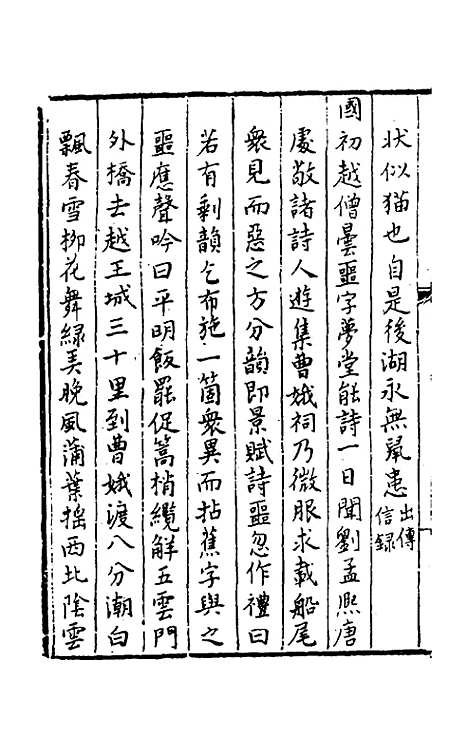 狀似猫也自是後湖永無鼠患出傳信錄
國初越僧曇噩字夢堂能詩一日聞劉孟熙唐
處敬諸詩人遊集曹娥祠乃微服求載船尾
衆見而惡之方分韻即景賦詩噩忽作禮曰
若有剩韻乞布施一箇衆異而拈蕉字與之
噩應聲吟曰平明飯罷促篙梢纜解五雲門
外橋去越王城三十里到曹娥渡八分潮白
飄春雪柳花舞綠美晚風蒲葉搖西北陰雲